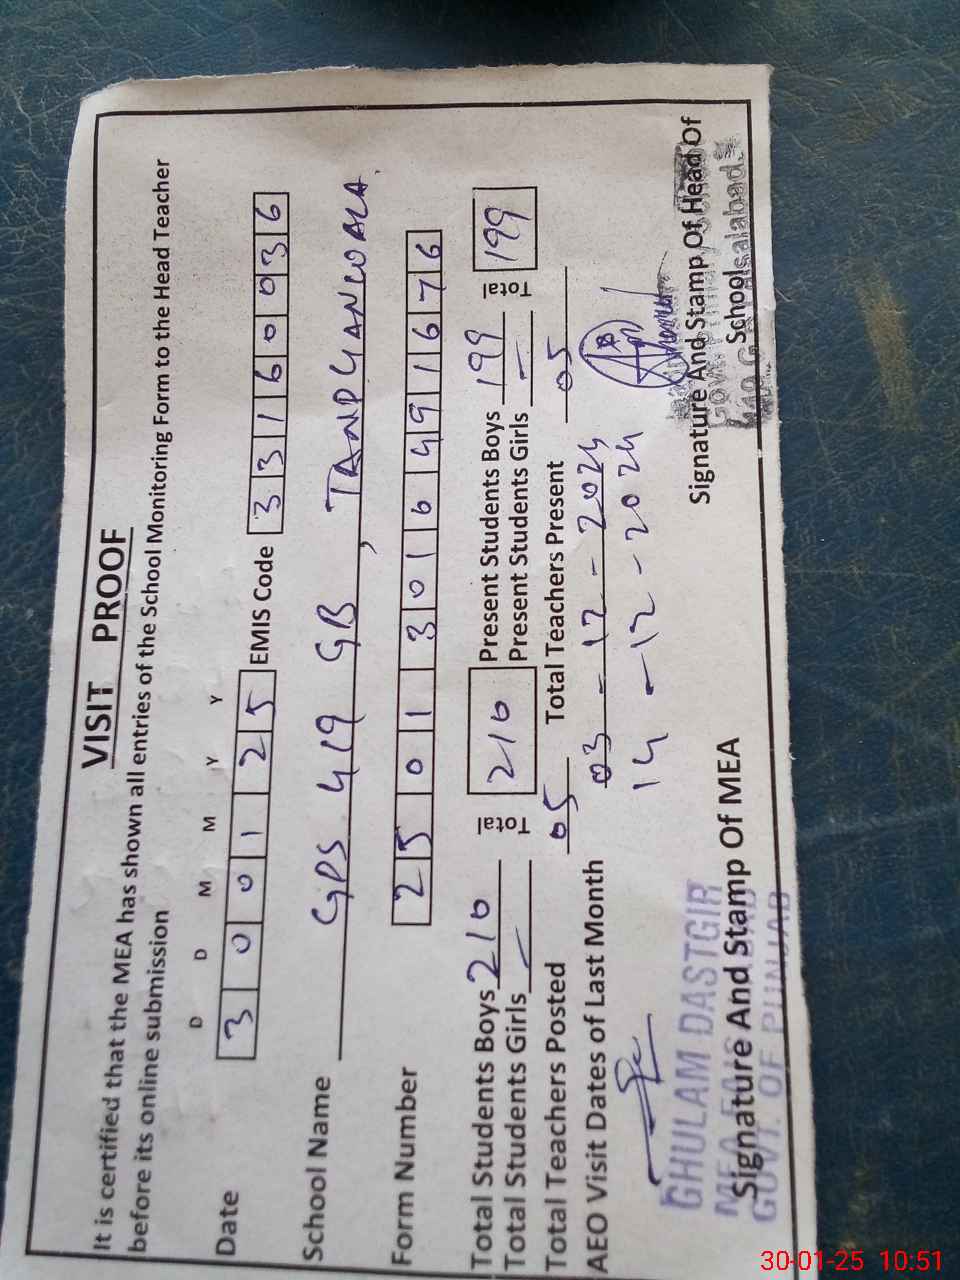 VISIT PROOF
It is certified that the MEA has shown all entries of the School Monitoring Form to the Head Teacher
before its online submission
D D M M Y Y
Date 3 0 0 1 2 5 EMIS Code 3 3 1 6 0 0 3 6
School Name GPS 419 GB, TANDLIANWALA.
Form Number 2 5 0 1 1 3 0 1 6 4 9 1 6 7 6
Total Students Boys 216 Total 216 Present Students Boys 199 Total 199
Total Students Girls – Present Students Girls –
Total Teachers Posted 05 Total Teachers Present 05
AEO Visit Dates of Last Month 03 - 12 - 2024
14 - 12 - 2024
GHULAM DASTGIR
MEA
Signature And Stamp Of MEA
GOVT. OF PUNJAB
Signature And Stamp Of Head Of
School
Govt. Primary School
419 G.B. Faisalabad.
30-01-25 10:51